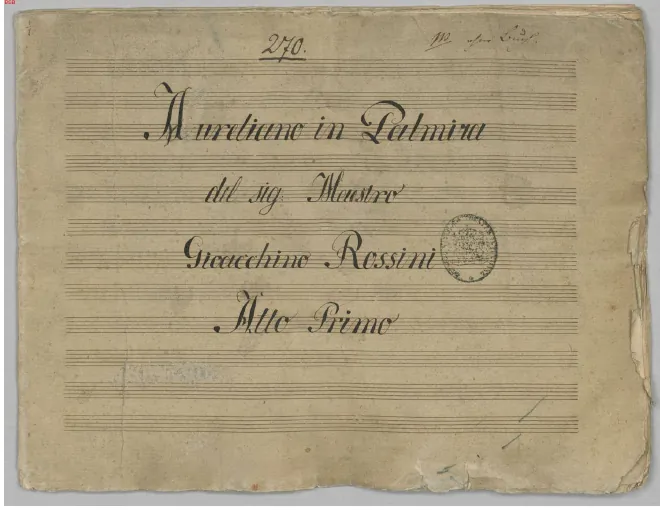 270.
Aureliano in Palmira
del sig. Maestro
Gioacchino Rossini
Atto Primo